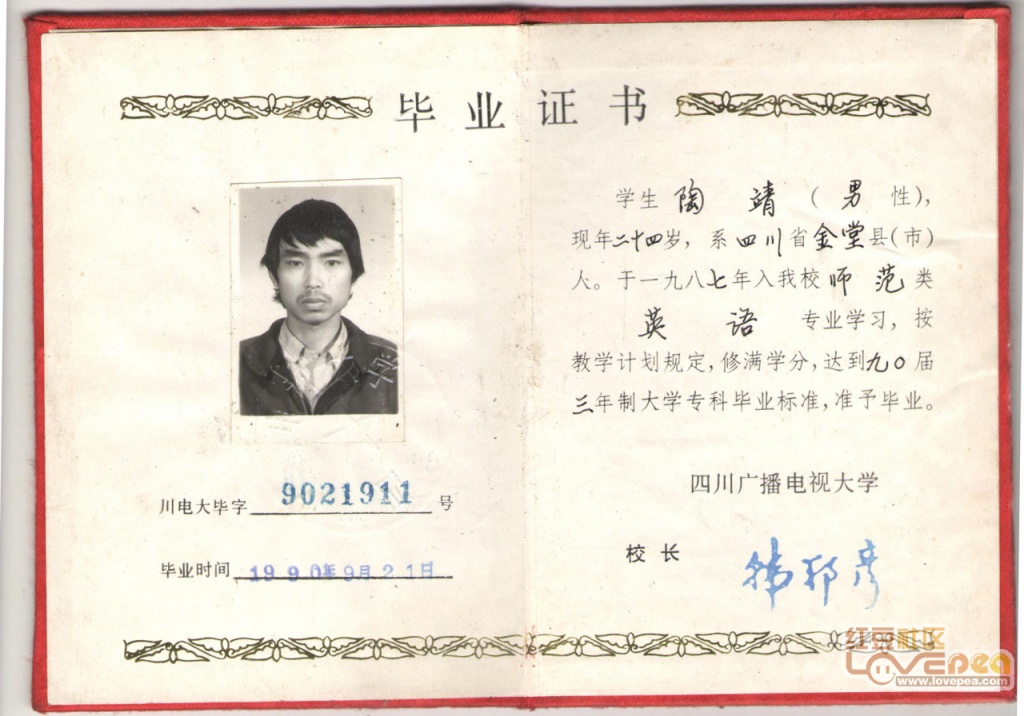 毕业证书
学
川电大毕字 9021911 号
毕业时间 1990年9月21日
学生 陶 靖 (男 性),
现年二十四岁, 系四川省金堂县(市)
人。于一九八七年入我校师范类
英 语 专业学习, 按
教学计划规定, 修满学分, 达到九〇届
三年制大学专科毕业标准, 准予毕业。
四川广播电视大学
校 长 韩邦彦
红豆社区
LOVEPea
www.lovepea.com